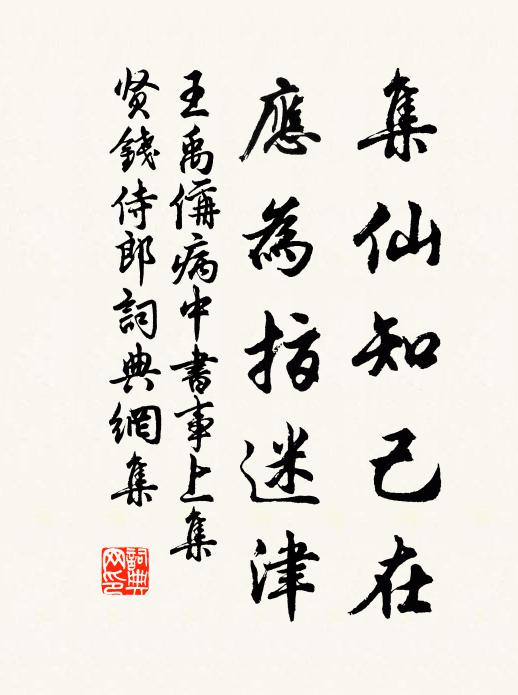 集仙知己在
應為指迷津
王禹偁病中書事上集
贤錢侍郎詞典網集
詞典网印